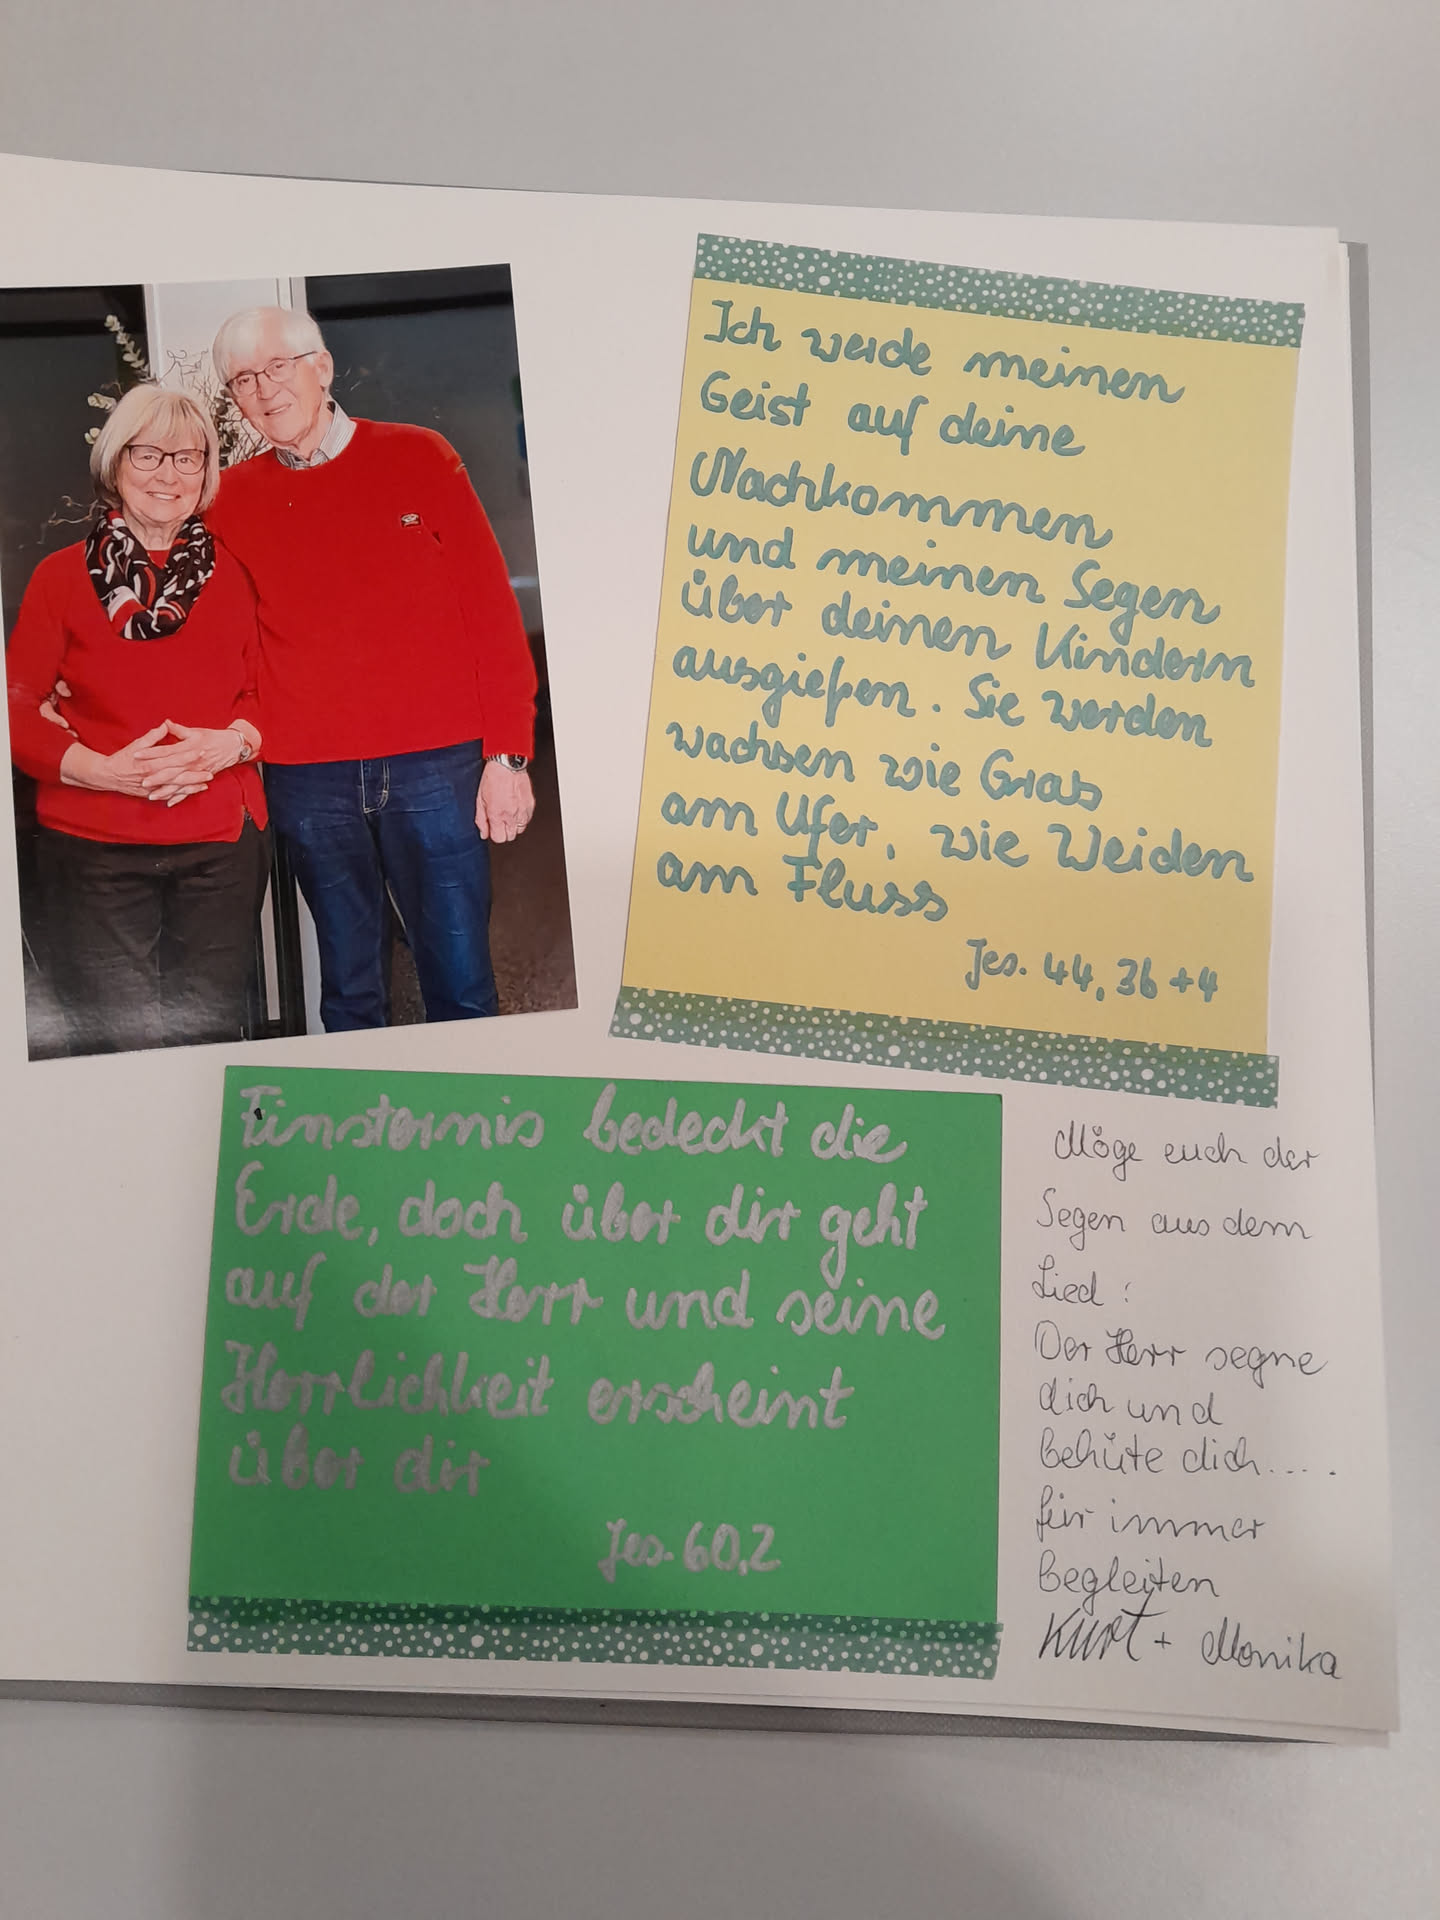 Ich werde meinen
Geist auf deine
Nachkommen
und meinen Segen
über deinen Kindern
ausgießen. Sie werden
wachsen wie Gras
am Ufer, wie Weiden
am Fluss
Jes. 44, 3b + 4
Finsternis bedeckt die
Erde, doch über dir geht
auf der Herr und seine
Herrlichkeit erscheint
über dir
Jes. 60,2
Möge euch der
Segen aus dem
Lied:
Der Herr segne
dich und
behüte dich.....
für immer
begleiten
Kurt + Monika